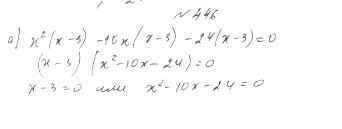 № 446
а) x²(x-3) -10x(x-3) -24(x-3)=0
(x-3) (x²-10x-24)=0
x-3=0 или x²-10x-24=0